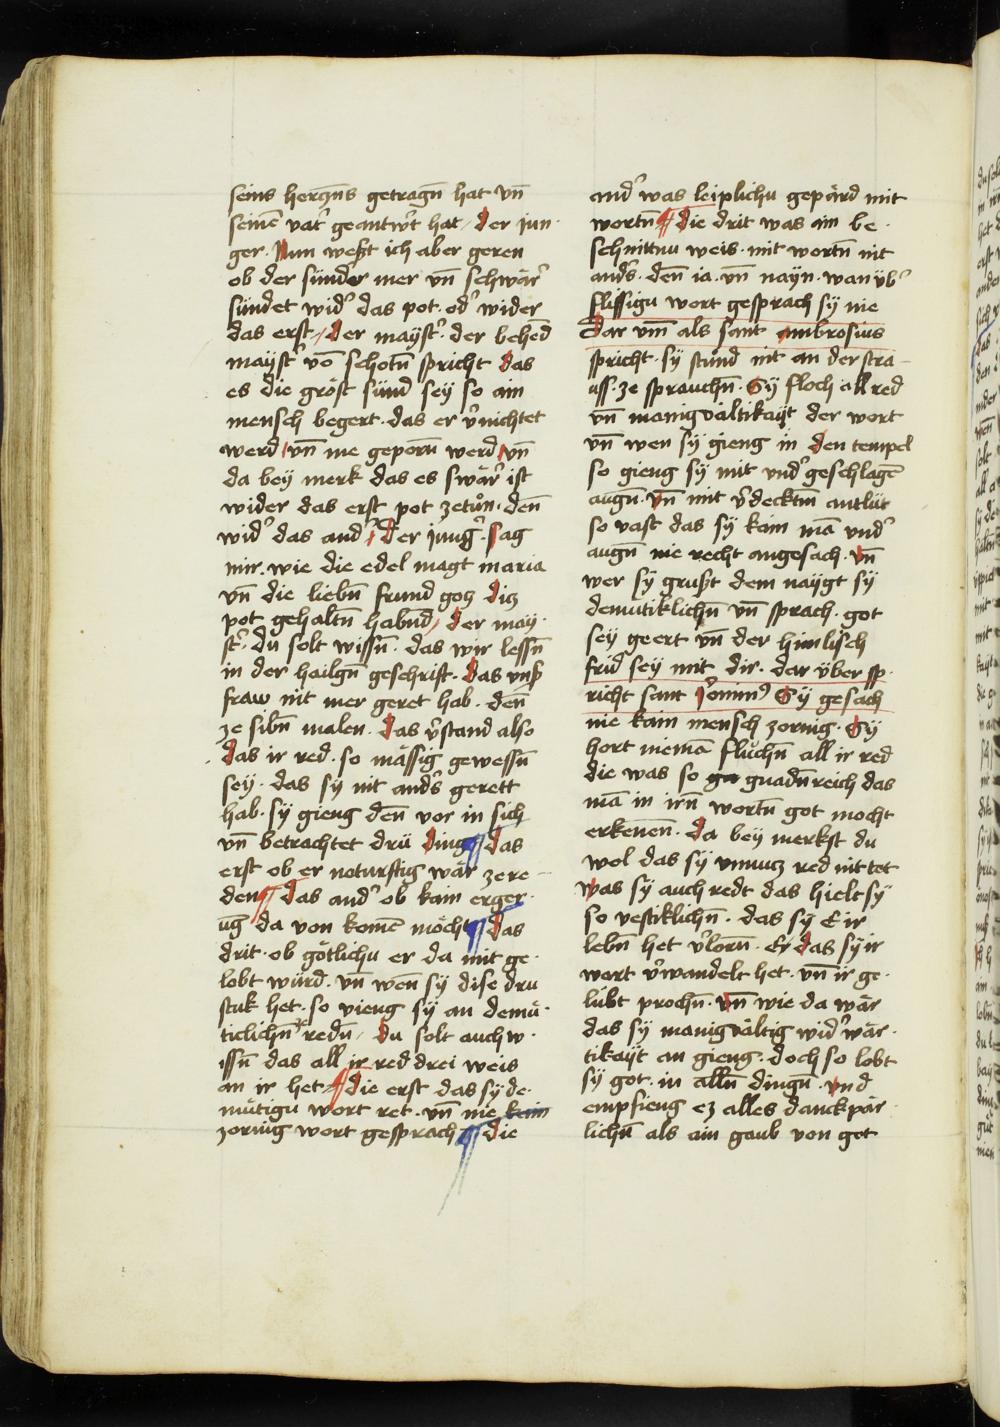 seins herczns getragn̄ hat vn̄
seinē vatˀ geantwˀt hat / der jun
ger · Nun weßt ich aber geren
ob der sünder mer vn̄ schwärˀ
sündet widˀ das pot · odˀ wider
das erst / der maystˀ · der behēd
maystˀ vō schotn̄ spricht Das
es die gröst sünd sey so ain
mensch begert · das er vˀnichtet
werd vn̄ nie geporn̄ werd vn̄
da bey merk das es swärˀ ist
wider das erst pot zetůn · den̄
widˀ das andˀ / Der jungˀ · sag
mir · wie die edel magt maria
vn̄ die liebn̄ frund gotz diz
pot gehaltn̄ habnd / der may ·
stˀ · du solt wissn̄ · das wir lessn̄
in der hailgn̄ geschrift · Das vnsˀ
fraw nit mer geret hab · den̄
ze sibn̄ malen · Das vˀstand also
das ir red · so mässig gewessn̄
sey · das sy nit andˀs gerett
hab · sy gieng den̄ vor in sich
vn̄ betrachtet drü ding ¶ das
erst ob er noturftig wär ze re
den ¶ das andˀ ob kain erger ·
ūg da von komē möcht ¶ das
drit · ob götlichu er da mit ge ·
lobt würd · vn̄ wen̄ sy dise dru
stuk het · so vieng sy an demü ·
ticlichn̄ ze redn̄ / du solt auch w ·
issn̄ das all ir red drei weis
an ir het ¶ die erst das sy de ·
mütigu wort ret · vn̄ nie kain
zornig wort gesprach ¶ die
andˀ was leiplichu gepärd mit
wortn̄ ¶ die drit was ain be ·
schnittnu weis · mit wortn̄ nit
andˀs · den̄ ia · vn̄ nayn · wan übˀ
flissigu wort gesprach sy nie
Dar vm̄ als sant ambrosius
spricht · sy stund nit an der stra
uss · ze sprauchn̄ · Sy floch all red
vn̄ manigvaltikayt der wort
vn̄ wen sy gieng in den tempel
so gieng sy mit vndˀ geschlagē
augn̄ · vn̄ mit vˀdecktm̄ antlüt
so vast das sy kain mā vndˀ
augn̄ nie recht angesach · vn̄
wer sy grußt dem naygt sy
demütiklichn̄ vn̄ sprach · got
sey geert vn̄ der himlisch
frid sey mit dir · dar über sp ·
richt sant Jeronimꝰ Sy gesach
nie kain mensch zornig · Sy
hort niemā fluchn̄ all ir red
die was so gnadn̄reich das
mā in irn̄ wortn̄ got mocht
erkenen̄ · Da bey merkst du
wol das sy vnnucz red nit tet
was sy auch redt das hielt sy
so vestiklichn̄ · das sy E ir
lebn̄ het vˀlorn̄ · Er das sy ir
wort vˀwandelt het · vn̄ ir ge ·
lübt prochn̄ · vn̄ wie da wär
das sy manigvältig widˀwär ·
tikayt an gieng · doch so lobt
sy got · in alln̄ dingn̄ · vnd
empfieng ez alles danckpär
lichn̄ als ain gaub von got